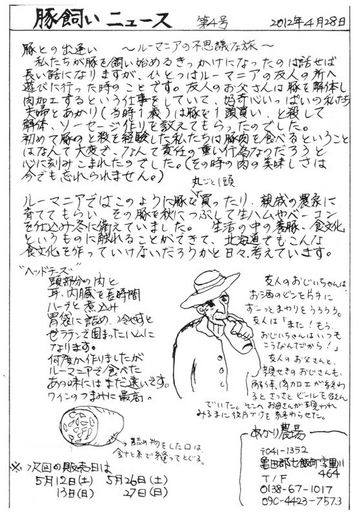 豚飼いニュース 第4号 2012年4月28日
豚との出逢い 〜ルーマニアの不思議な旅〜
私たちが豚を飼い始めるきっかけになったのは話せば
長い話になりますが、ひとつはルーマニアの友人の所へ
遊びに行った時のことです。友人のお父さんは豚を解体し
肉加工するという仕事をしていて、好奇心いっぱいの私たち
夫婦とあかり(当時1歳)は豚を1頭買い、と殺して
解体、ソーセージ作りを教えてもらったのでした。
初めて豚のと殺を経験した私たちは豚肉を食べるということ
はなんて大変で、なんて責任の重い行為なのだろうと
心に刻みこまれたのでした。(その時の肉の美味しさは
今でも忘れられません。)
丸ごと1頭
ルーマニアではこのように豚を買ったり、親戚の農家に
育ててもらい その豚を秋につぶして生ハムやベーコン
を仕込み冬に備えていました。 生活の中の養豚、食文化
というものに触れることができて、北海道でもこんな
食文化を作っていけないだろうかと日々考えています。
"ヘッドチーズ"
頭部分の肉と
耳、内臓を長時間
ハーブと煮込み
胃袋に詰め冷やすと
ゼラチンで固まったハムに
なります。
何度か作りましたが
ルーマニアで食べた
あの味にはまだ遠いです。
ワインのつまみに最高。
→詰め物をした口は
金ぐしで縫ってとじる。
友人のおじいちゃんは
お酒のビンを片手に
ずーっとまわりをうろうろ。
友人は「また!もう
おじいちゃんはいつも
こうなんだから!」
友人のお父さんと、
でいたし、そこの
※次回の販売日は
5月12日(土) 5月26日(土)
13日(日) 27日(日)
あかり農場
〒041-1352
亀田郡七飯町字里川
464
T/F
0138-67-1017
090-4423-7573